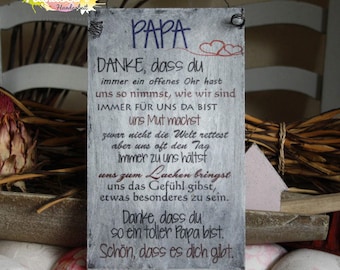 PAPA
DANKE, dass du
immer ein offenes Ohr hast
uns so nimmst, wie wir sind
IMMER FÜR UNS DA BIST
uns Mut machst
zwar nicht die Welt rettest
aber uns oft den Tag
Immer zu uns hältst
uns zum Lachen bringst
uns das Gefühl gibst,
etwas besonderes zu sein.
Danke, dass du
so ein toller Papa bist.
Schön, dass es dich gibt.